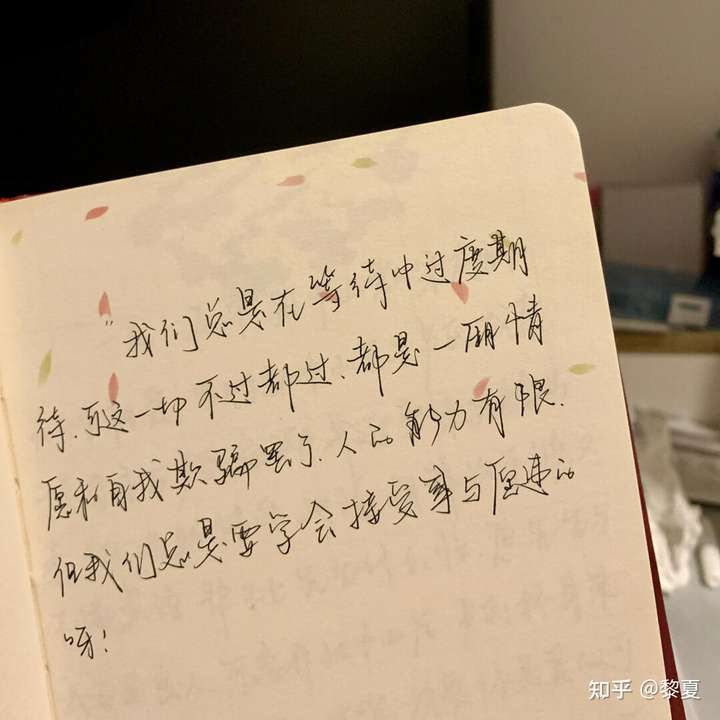 "我们总是在等待中过度期
待.可这一切不过都过、都是一厢情
愿和自我欺骗罢了.人的能力有限.
但我们总是要学会接受事与愿违的
呀!
知乎 @黎夏